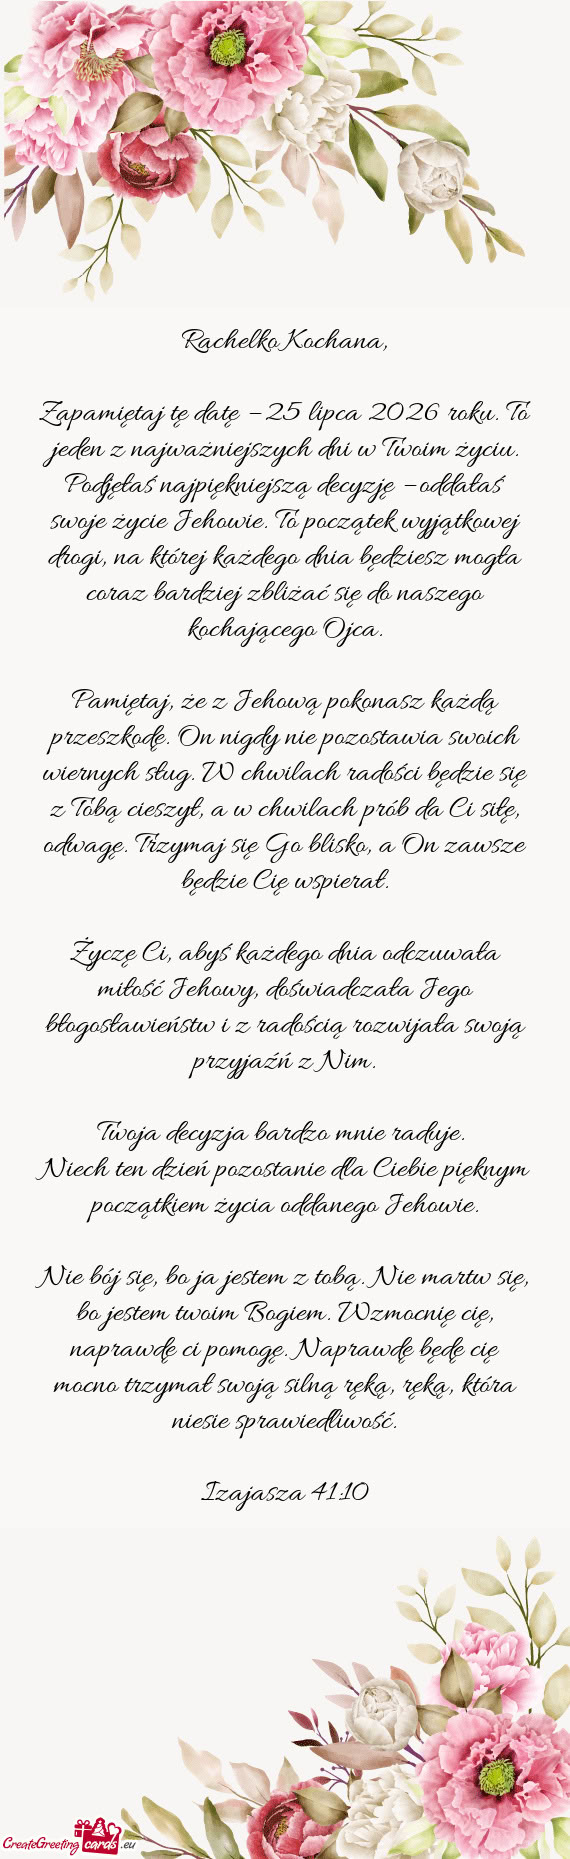 Rachelko Kochana,
Zapamiętaj tę datę – 25 lipca 2026 roku. To
jeden z najważniejszych dni w Twoim życiu.
Podjęłaś najpiękniejszą decyzję – oddałaś
swoje życie Jehowie. To początek wyjątkowej
drogi, na której każdego dnia będziesz mogła
coraz bardziej zbliżać się do naszego
kochającego Ojca.
Pamiętaj, że z Jehową pokonasz każdą
przeszkodę. On nigdy nie pozostawia swoich
wiernych sług. W chwilach radości będzie się
z Tobą cieszył, a w chwilach prób da Ci siłę,
odwagę. Trzymaj się Go blisko, a On zawsze
będzie Cię wspierał.
Życzę Ci, abyś każdego dnia odczuwała
miłość Jehowy, doświadczała Jego
błogosławieństw i z radością rozwijała swoją
przyjaźń z Nim.
Twoja decyzja bardzo mnie raduje.
Niech ten dzień pozostanie dla Ciebie pięknym
początkiem życia oddanego Jehowie.
Nie bój się, bo ja jestem z tobą. Nie martw się,
bo jestem twoim Bogiem. Wzmocnię cię,
naprawdę ci pomogę. Naprawdę będę cię
mocno trzymał swoją silną ręką, ręką, która
niesie sprawiedliwość.
Izajasza 41:10
CreateGreeting cards .eu